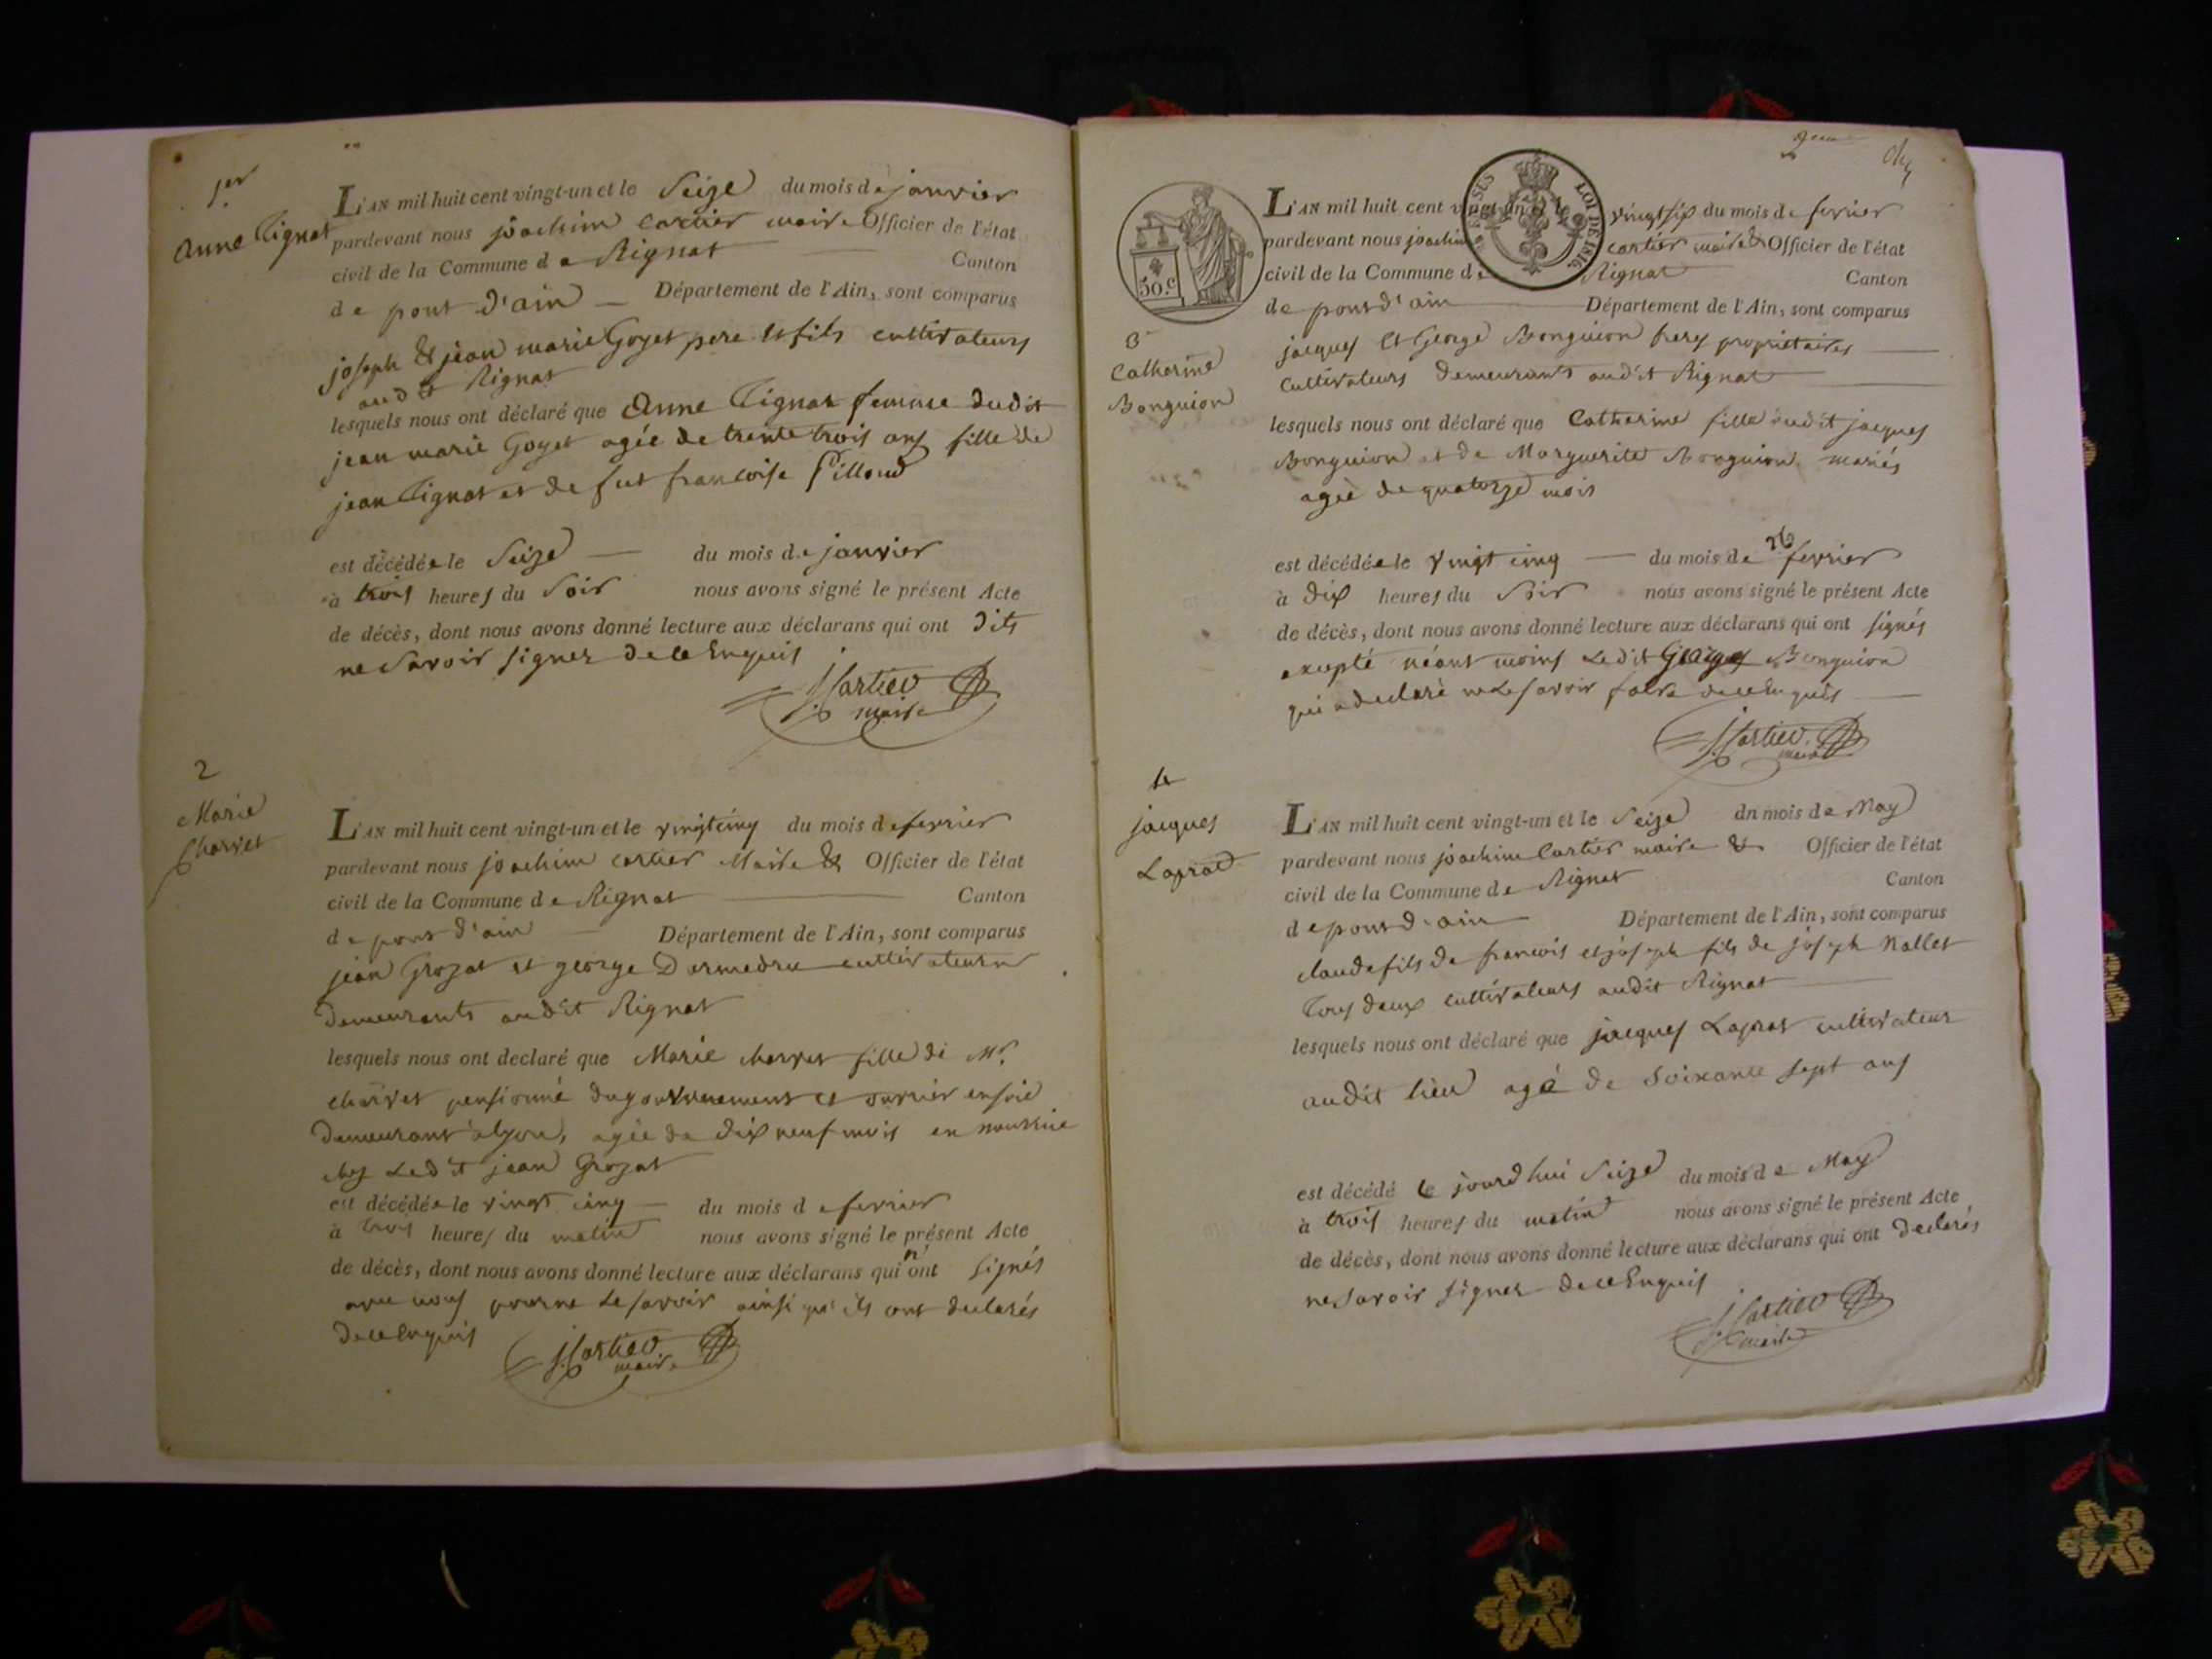 1er
Anne Tignat
L'AN mil huit cent vingt-un et le Seize du mois de janvier
pardevant nous joachim cartier maire Officier de l'état
civil de la Commune de Rignat Canton
de pont d'ain Département de l'Ain, sont comparus
joseph & jean marie Goyet pere et fils cultivateurs
audit Rignat
lesquels nous ont déclaré que Anne Tignat femme dudit
jean marie Goyet agée de trente trois ans fille de
jean Tignat et de fut francoise Pilloud
est décédée le Seize du mois de janvier
à trois heures du Soir nous avons signé le présent Acte
de décès, dont nous avons donné lecture aux déclarans qui ont dits
ne Savoir signer de ce Enquis
J. Cartier
maire
2
Marie
Charvet
L'AN mil huit cent vingt-un et le vingt cinq du mois de fevrier
pardevant nous joachim cartier Maire & Officier de l'état
civil de la Commune de Rignat Canton
de pont d'ain Département de l'Ain, sont comparus
jean Grozat et george Darmedru cultivateurs
demeurants audit Rignat
lesquels nous ont declaré que Marie charvet fille de Mr.
charvet pensionné du gouvernement et ouvrier en soie
demeurant a lyon, agée de dix neuf mois en nourrice
chez Ledit jean Grozat
est décédée le vingt cinq du mois de fevrier
à trois heures du matin nous avons signé le présent Acte
de décès, dont nous avons donné lecture aux déclarans qui n'ont signés
avec nous pour ne Le savoir ainsi qu'ils ont declarés
de ce Enquis
J. Cartier
maire
2eme
50.c
LOI DE 1816.
3
Catherine
Bonguion
L'AN mil huit cent vingt-un et le vingt six du mois de fevrier
pardevant nous joachim cartier maire & Officier de l'état
civil de la Commune de Rignat Canton
de pont d'ain Département de l'Ain, sont comparus
jacques et George Bonguion freres propriétaires
Cultivateurs demeurants audit Rignat
lesquels nous ont déclaré que Catherine fille dudit jacques
Bonguion et de Marguerite Bonguion mariés
agée de quatorze mois
est décédée le vingt cinq du mois de fevrier
à dix heures du Soir nous avons signé le présent Acte
de décès, dont nous avons donné lecture aux déclarans qui ont signés
excepté néant moins Ledit George Bonguion
qui a declaré ne Le savoir faire de ce Enquis
J. Cartier
maire
4
jacques
Laprat
L'AN mil huit cent vingt-un et le Seize du mois de May
pardevant nous joachim Cartier maire & Officier de l'état
civil de la Commune de Rignat Canton
de pont d'ain Département de l'Ain, sont comparus
claude fils de francois et joseph fils de joseph Nallet
Tous deux cultivateurs audit Rignat
lesquels nous ont déclaré que jacques Laprat cultivateur
audit lieu agé de Soixante sept ans
est décédé le jourdhui Seize du mois de May
à trois heures du matin nous avons signé le présent Acte
de décès, dont nous avons donné lecture aux déclarans qui ont declarés
ne Savoir signer de ce Enquis
J. Cartier
maire